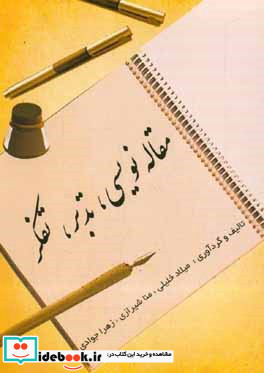 مقاله نویسی، تدبر، تفکر
تالیف و گردآوری: میلاد خلیلی، منا شیرازی، زهرا جوادی
مشاهده و خرید این کتاب در:
iidebook.ir